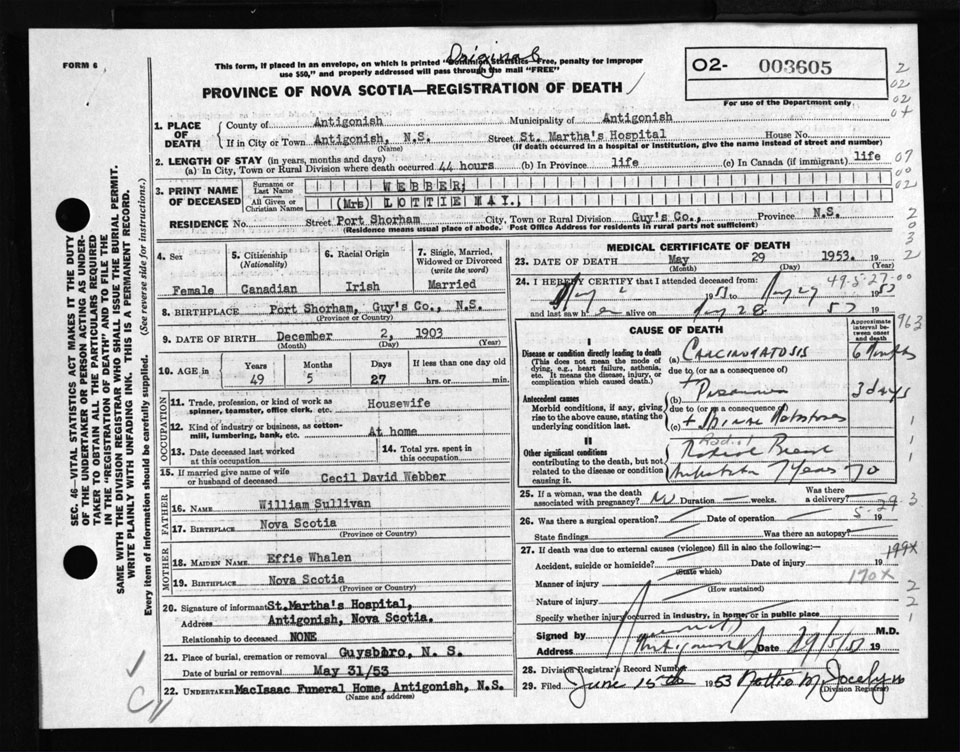 Original
FORM 6
This form, if placed in an envelope, on which is printed "Dominion Statistics—Free, penalty for improper
use $50," and properly addressed will pass through the mail "FREE"
PROVINCE OF NOVA SCOTIA—REGISTRATION OF DEATH
O2- 003605
For use of the Department only
2
02
02
04
07
00
02
2
0
3
2
1. PLACE OF DEATH
County of Antigonish Municipality of Antigonish
If in City or Town Antigonish, N.S. Street St. Martha's Hospital House No.
(Name) (If death occurred in a hospital or institution, give the name instead of street and number)
2. LENGTH OF STAY (in years, months and days)
(a) In City, Town or Rural Division where death occurred 44 hours (b) In Province life (c) In Canada (if immigrant) life
3. PRINT NAME OF DECEASED
Surname or Last Name WEBBER,
All Given or Christian Names (Mrs) LOTTIE MAY.
RESIDENCE No. Street Port Shorham City, Town or Rural Division Guy's Co., Province N.S.
(Residence means usual place of abode. Post Office Address for residents in rural parts not sufficient)
4. Sex
Female
5. Citizenship (Nationality)
Canadian
6. Racial Origin
Irish
7. Single, Married, Widowed or Divorced (write the word)
Married
8. BIRTHPLACE Port Shorham, Guy's Co., N.S.
(Province or Country)
9. DATE OF BIRTH December 2, 1903
(Month) (Day) (Year)
10. AGE in
Years Months Days If less than one day old
49 5 27 hrs. or min.
OCCUPATION
11. Trade, profession, or kind of work as
spinner, teamster, office clerk, etc. Housewife
12. Kind of industry or business, as cotton-
mill, lumbering, bank, etc. At home
13. Date deceased last worked
at this occupation
14. Total yrs. spent in
this occupation
15. If married give name of wife
or husband of deceased Cecil David Webber
FATHER
16. NAME William Sullivan
17. BIRTHPLACE Nova Scotia
(Province or Country)
MOTHER
18. MAIDEN NAME Effie Whalen
19. BIRTHPLACE Nova Scotia
(Province or Country)
20. Signature of informant St.Martha's Hospital,
Address Antigonish, Nova Scotia.
Relationship to deceased NONE
21. Place of burial, cremation or removal Guysboro, N. S.
Date of burial or removal May 31/53
22. UNDERTAKER MacIsaac Funeral Home, Antigonish, N.S.
(Name and address)
MEDICAL CERTIFICATE OF DEATH
23. DATE OF DEATH May 29 1953. 19
(Month) (Day) (Year)
24. I HEREBY CERTIFY that I attended deceased from: 49-5-27-00
May 1953 to May 29 1953
and last saw her alive on May 28 53 19
963
CAUSE OF DEATH
Approximate interval between onset and death
I
Disease or condition directly leading to death
(This does not mean the mode of
dying, e.g., heart failure, asthenia,
etc. It means the disease, injury, or
complication which caused death.)
(a) Carcinomatosis 6 months
due to (or as a consequence of)
Antecedent causes
Morbid conditions, if any, giving
rise to the above cause, stating the
underlying condition last.
(b) 3 days
due to (or as a consequence of)
(c)
II
Other significant conditions
contributing to the death, but not
related to the disease or condition
causing it.
Radical Breast
7 years
25. If a woman, was the death
associated with pregnancy? Duration weeks. Was there
a delivery?
26. Was there a surgical operation? Date of operation 19
5-29-3
State findings Was there an autopsy?
27. If death was due to external causes (violence) fill in also the following:—
Accident, suicide or homicide? Date of injury 19
(State which)
199X
Manner of injury
(How sustained)
170X
Nature of injury
Specify whether injury occurred in industry, in home, or in public place
Signed by M.D.
Address Antigonish Date 29/5/53 19
28. Division Registrar's Record Number
29. Filed June 15th 1953
(Division Registrar)
SEC. 46—VITAL STATISTICS ACT MAKES IT THE DUTY
OF THE UNDERTAKER OR PERSON ACTING AS UNDER-
TAKER TO OBTAIN ALL THE PARTICULARS REQUIRED
IN THE "REGISTRATION OF DEATH" AND TO FILE THE
SAME WITH THE DIVISION REGISTRAR WHO SHALL ISSUE THE BURIAL PERMIT.
WRITE PLAINLY WITH UNFADING INK. THIS IS A PERMANENT RECORD.
Every item of information should be carefully supplied. (See reverse side for instructions.)